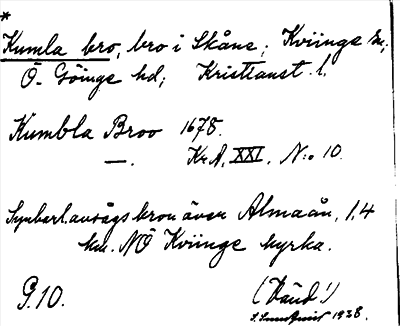 *
Kumla bro, bro i Skåne; Kviinge sn;
Ö. Göinge hd; Kristianst. l.
Kumbla Broo 1678.
—. Kr.A. XXI. N:o 10.
Synbarl. avsågs bron över Almaån, 1,4
km. NÖ Kviinge kyrka.
G.10. (Känd!)
1928.